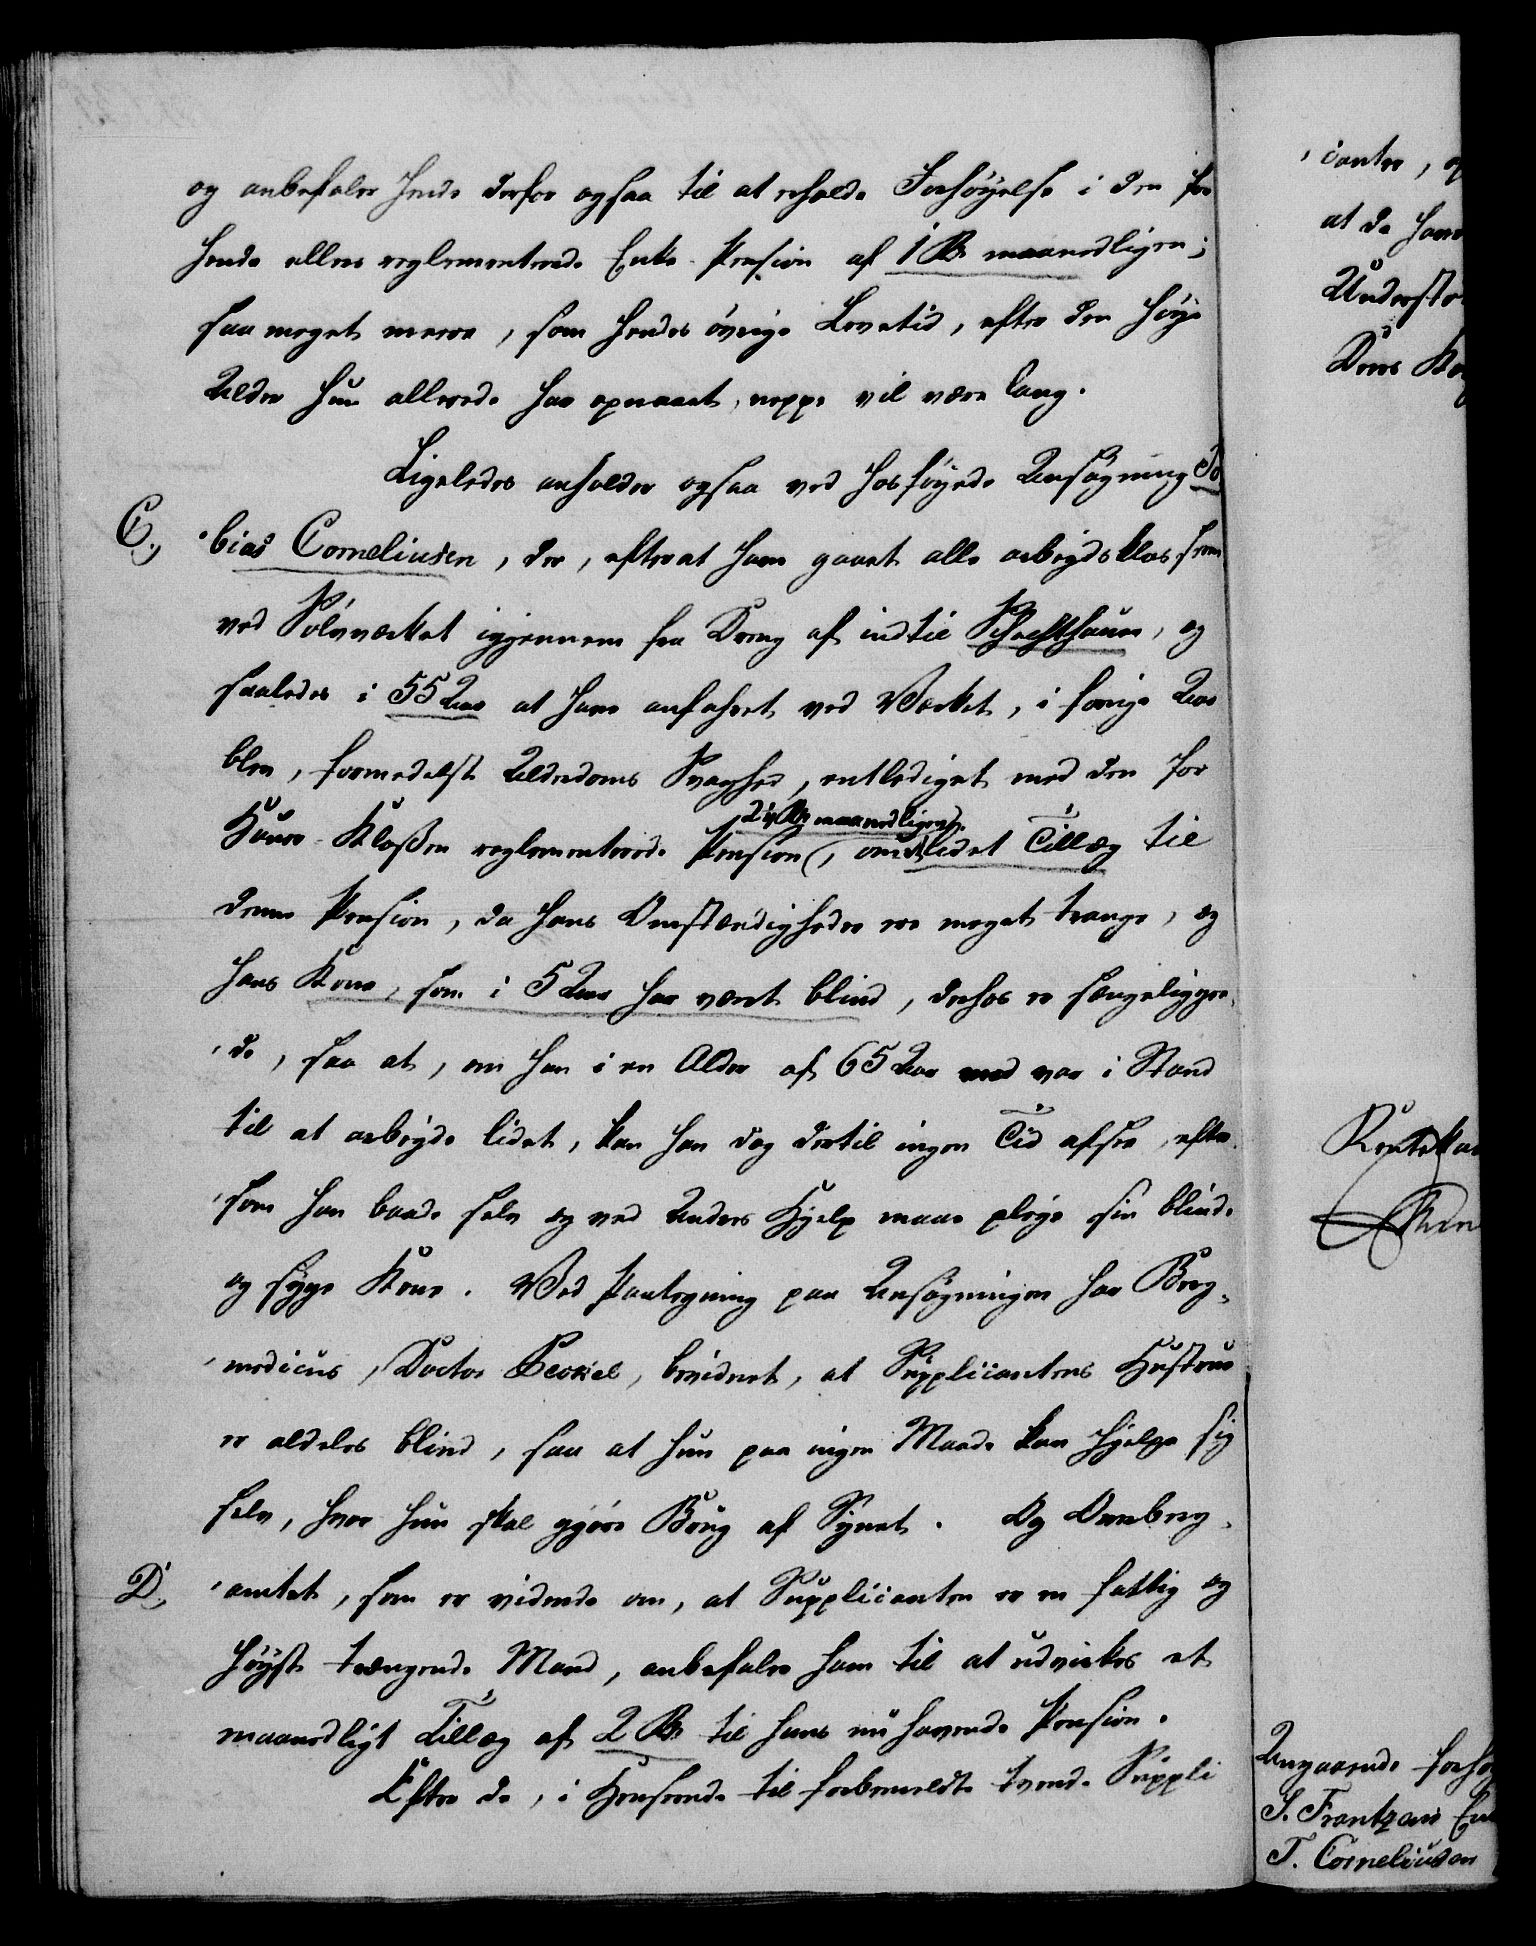 og anbefaler hende derfor ogsaa til at erholde Forhøyelse i den for
hende ellers reglementerede Enke-Pension af 1 Rd maanedligen;
saa meget meere, som hendes øvrige Levetid, efter den høye
Alder hun allerede har opnaaet, neppe vil være lang.
Ligeledes anholder ogsaa ved hosføyede Ansøgning To
C., bias Corneliusen, der, efterat have gaaet alle arbeydsklasserne
ved Sølvværket igjennem fra Dreng af indtil Schachthauer, og
saaledes i 55 Aar at have anfahret ved Værket, i forrige Aar
blev, formedelst Alderdoms Svaghed, entlediget med den for
2½ Rd maanedligen,
Hauer-Klassen reglementerede Pension, om et lidet Tillæg til
denne Pension, da hans Omstændigheder ere meget trange, og
hans Kone, som i 5 Aar har været blind, derhos er sængeliggen-
de, saa at, om han i en Alder af 65 Aar end var i Stand
til at arbeyde lidet, kan han dog dertil ingen Tid afsee, efter-
som han baade selv og ved Anders Hjelp maae pleye sin blinde
og syge Kone. Ved Paategning paa Ansøgningen har Berg-
medicus, Doctor Beckel, bevidnet, at Supplicantens Hustrue
er aldeles blind, saa at hun paa ingen Maade kan hjelpe sig
selv, hvor hun skal gjøre Brug af Synet. Og Overberg-
D., amtet, som er vidende om, at Supplicanten er en fattig og
høyst trængende Mand, anbefaler ham til at udvirkes et
maanedligt Tillæg af 2 Rd til hans nu havende Pension.
Efter de, i Henseende til forbemeldte tvende Suppli
canter, o
at de have
Understø
Deres Ko
Rentekam
Angaaende forhø
S. Frantzens En
T. Corneliusen